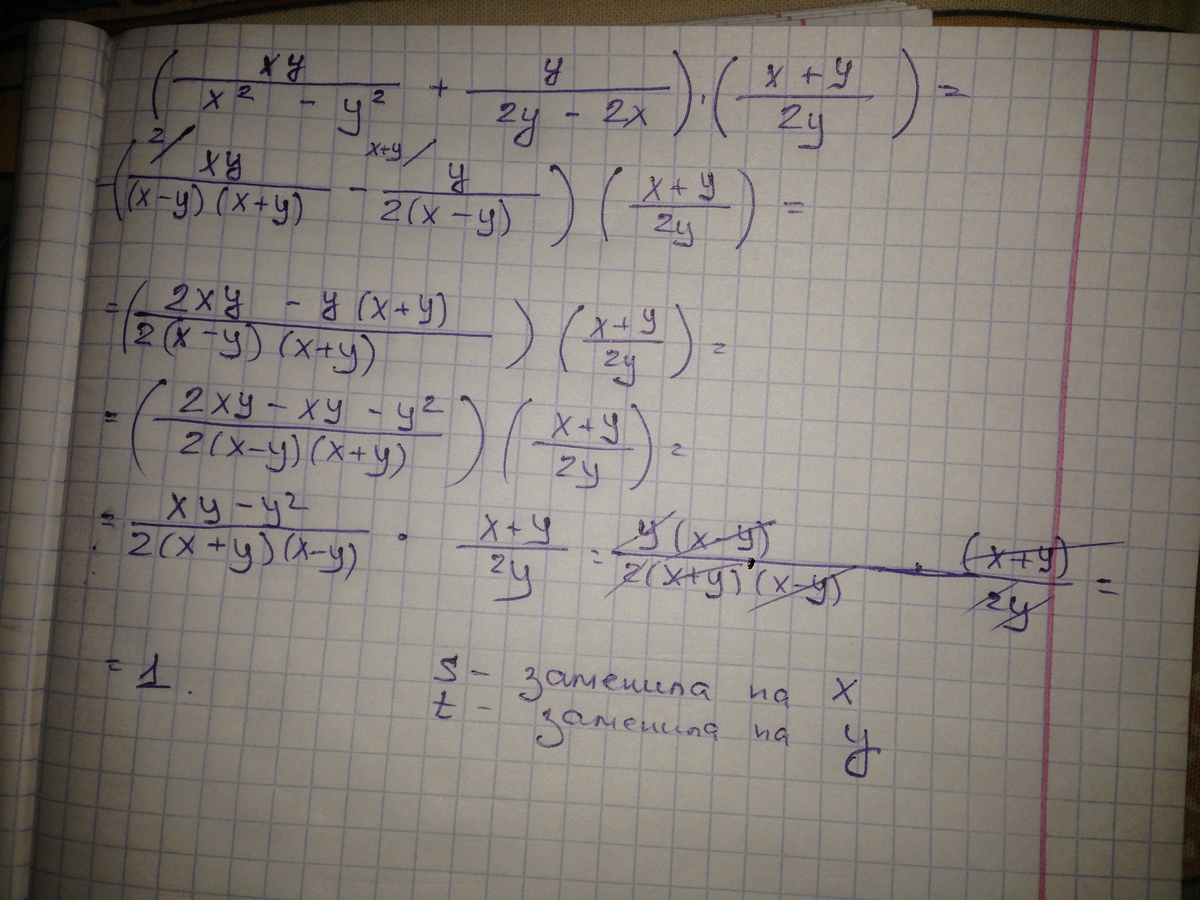 ( xy / x² - y² + y / 2y - 2x ) · ( x + y / 2y ) =
( 2/ xy / (x-y)(x+y) - x+y/ y / 2(x-y) ) ( x + y / 2y ) =
= ( 2xy - y(x+y) / 2(x-y)(x+y) ) ( x+y / 2y ) =
= ( 2xy - xy - y² / 2(x-y)(x+y) ) ( x+y / 2y ) =
= xy - y² / 2(x+y)(x-y) · x+y / 2y = y(x-y) / 2(x+y)(x-y) · (x+y) / 2y =
= 1.
S - заменила на x
t - заменила на y